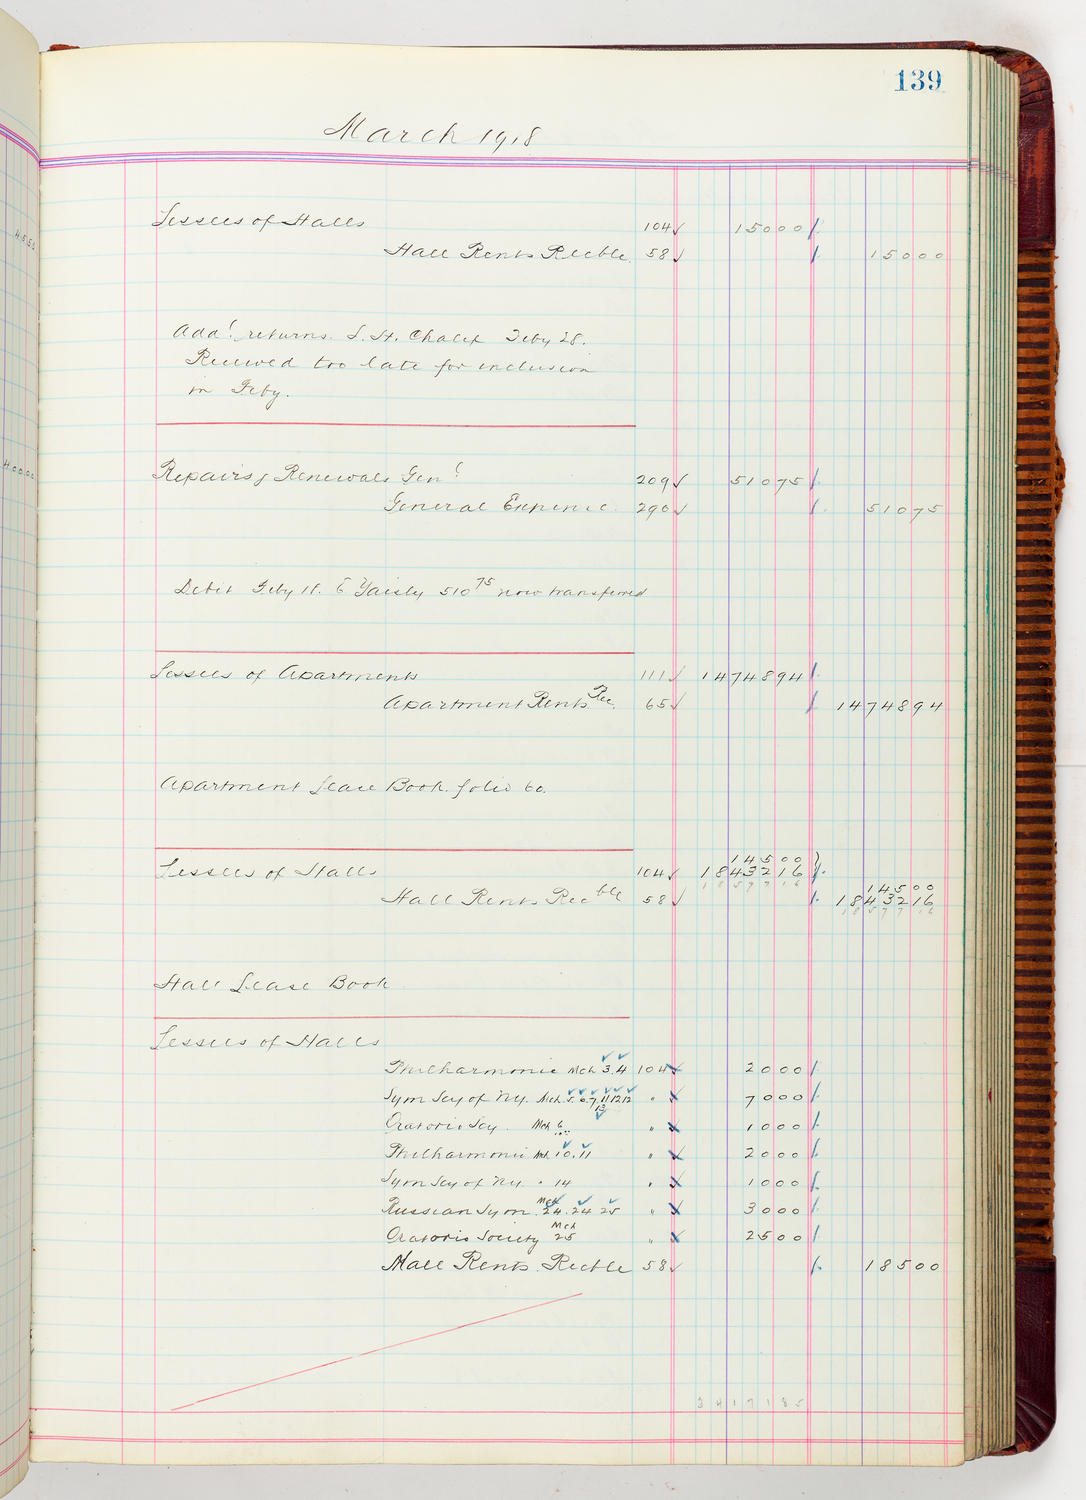 139
March 1918
Lessees of Halls 104 15000
Hall Rents Recble 58 15000
Add'l returns S. H. Chalif Feby 28.
Received too late for inclusion
in Feby.
Repairs & Renewals Gen'l 209 51075
General Expense 290 51075
Debit Feby 18. 510 75 now transferred
Lessees of Apartments 111 1474894
Apartment Rents Rec. 65 1474894
Apartment Lease Book folio 60.
14500
Lessees of Halls 104 1843216
1857716
14500
Hall Rents Recble 58 1843216
1857716
Hall Lease Book
Lessees of Halls
Philharmonic Mch 3.4 104 2000
Sym Socy of N.Y. Mch. 5. 6. 7, 11 12 12 " 7000
13
Oratorio Socy. Mch 6 " 1000
Philharmonic Mch. 10. 11 " 2000
Sym Socy of N.Y. " 14 " 1000
Russian Sym. Mch 24. 24 25 " 3000
Oratorio Society Mch 25 " 2500
Hall Rents Recble 58 18500
3417185